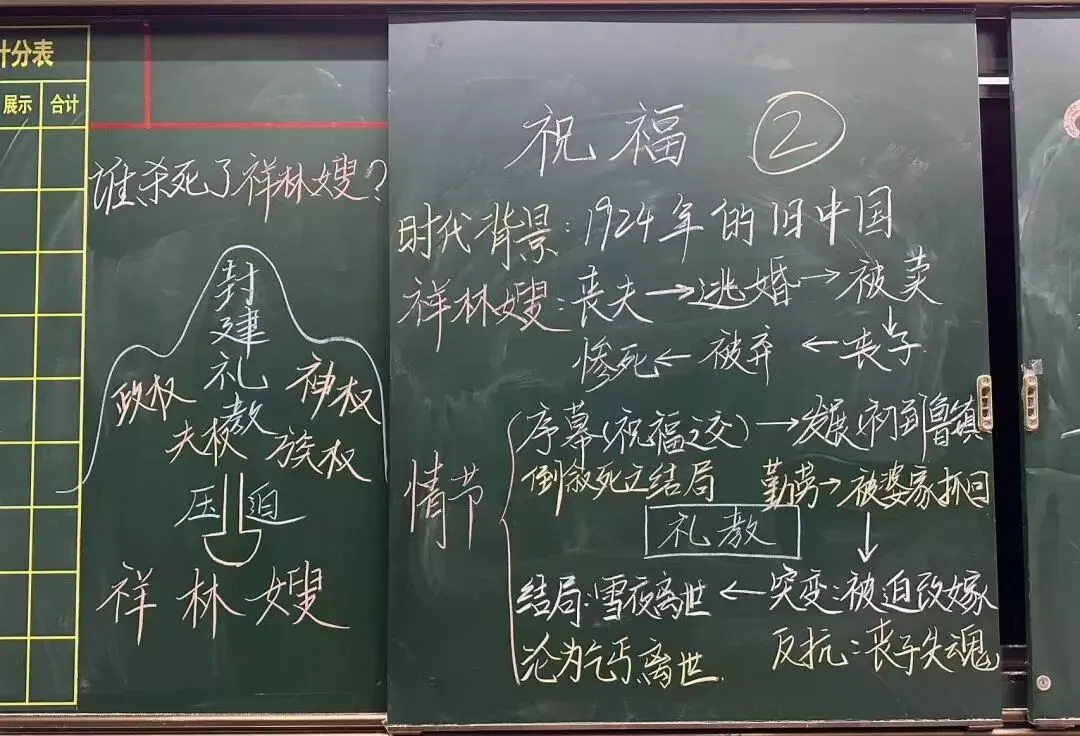 计分表
展示 合计
谁杀死了祥林嫂?
封建礼教
政权 神权
夫权 族权
压迫
祥林嫂
祝福 ②
时代背景:1924年的旧中国
祥林嫂:丧夫→逃婚→被卖
惨死←被弃←丧子
情节
序幕(祝福之交)→发展:初到鲁镇
倒叙死之结局 勤劳→被婆家抓回
礼教
结局:雪夜离世←突变:被迫改嫁
沦为乞丐离世 反抗:丧子失魂